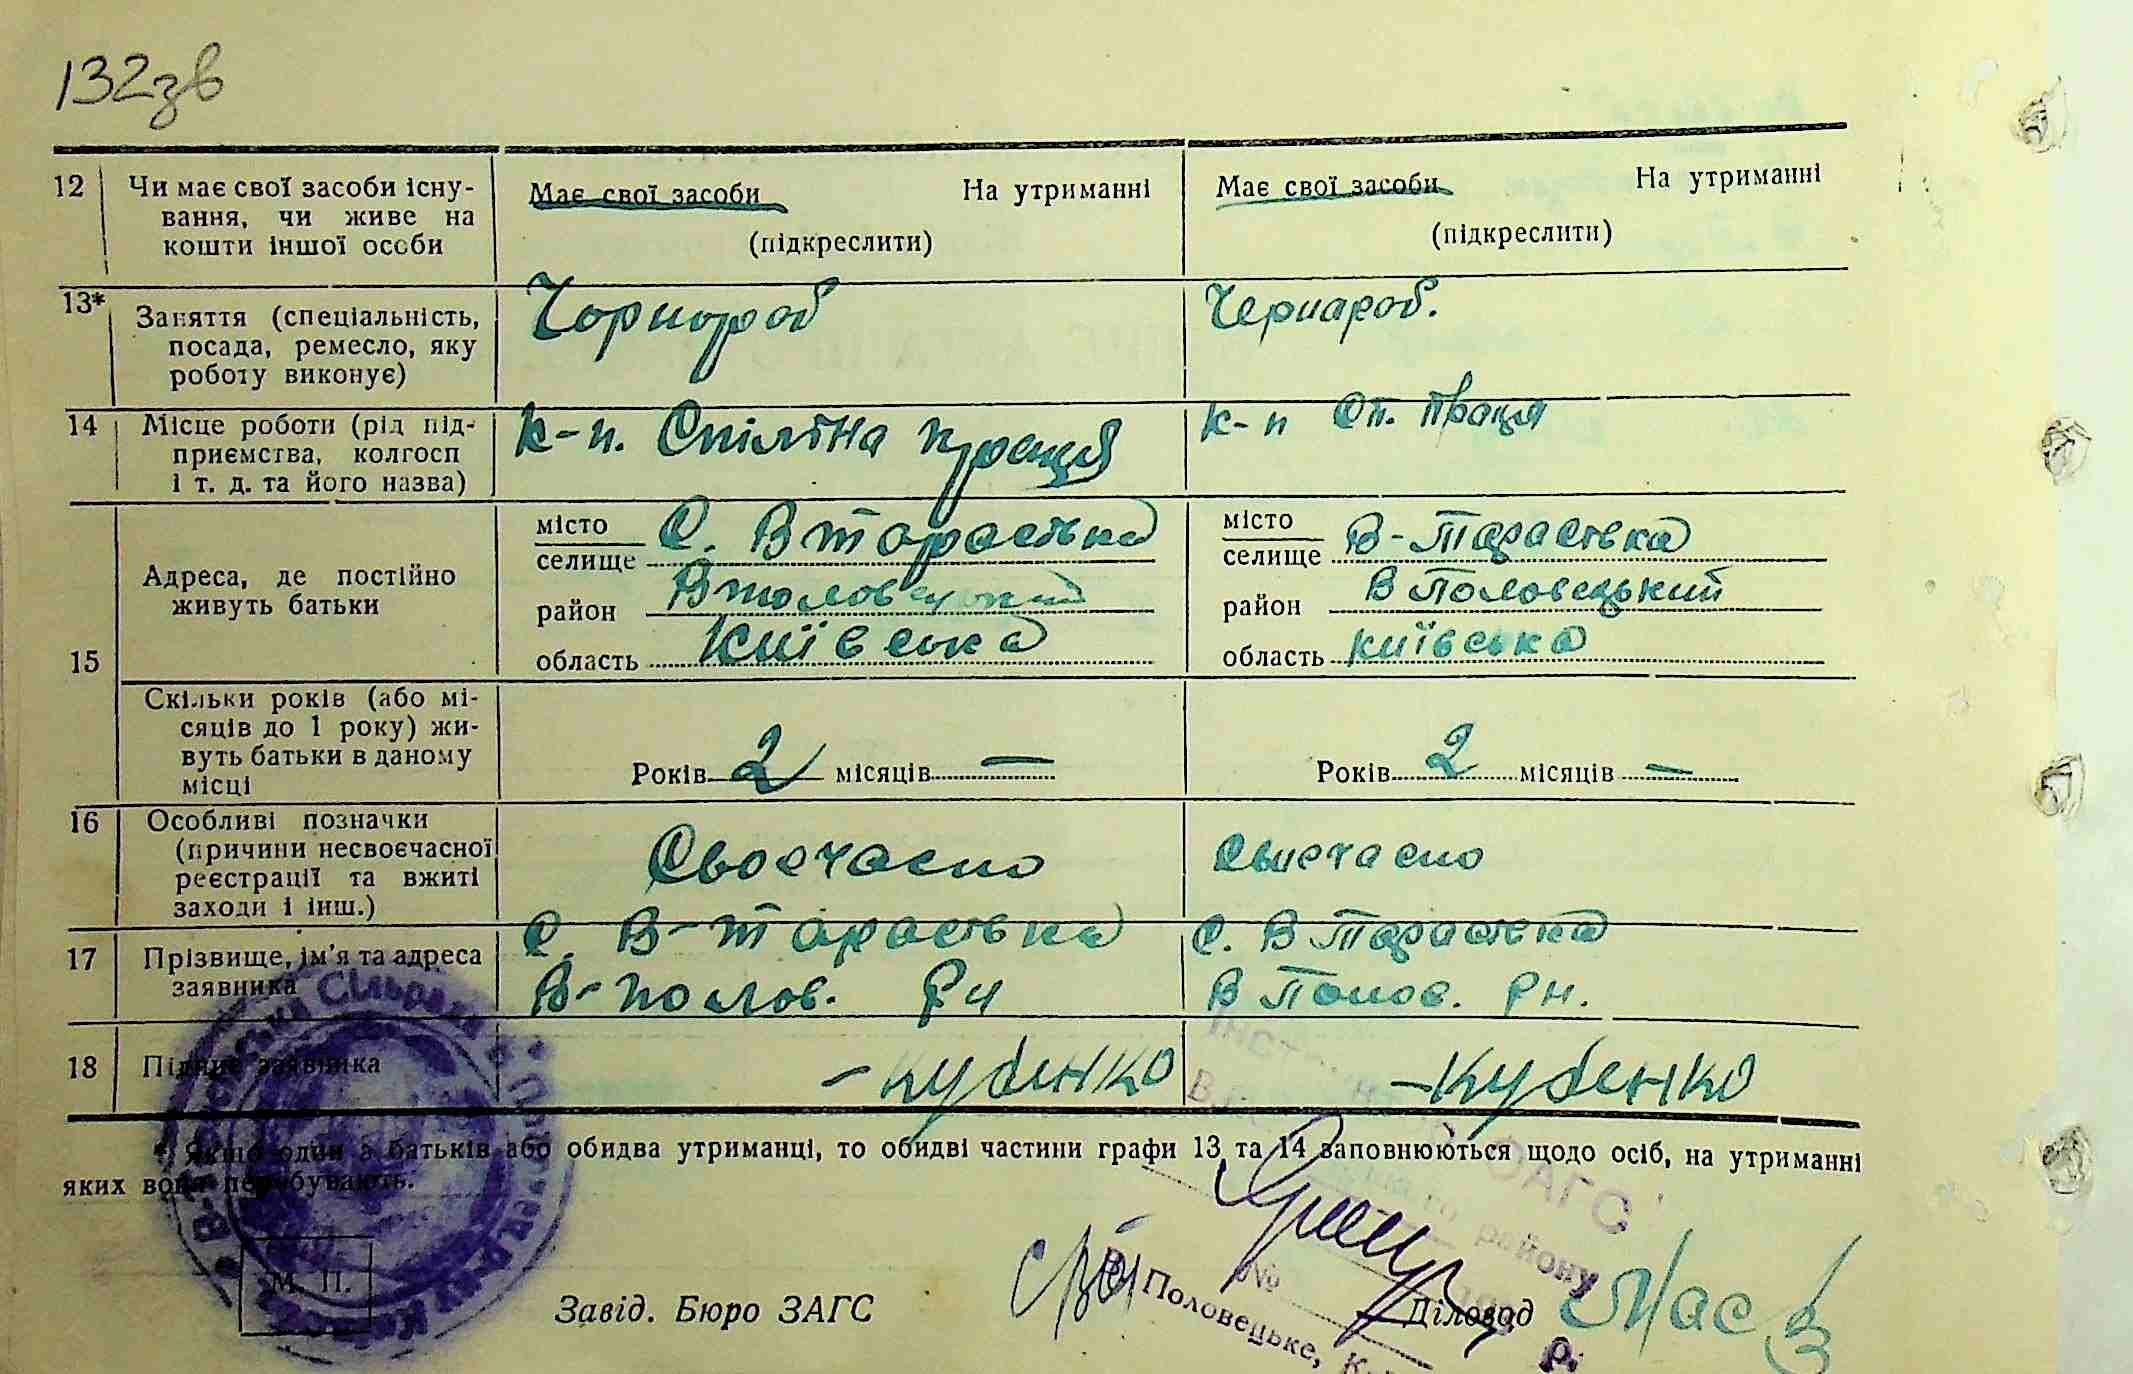 132зв
12 Чи має свої засоби існу- Має свої засоби На утриманні Має свої засоби На утриманні
вання, чи живе на
кошти іншої особи (підкреслити) (підкреслити)
13* Заняття (спеціальність, Чорнороб Чернароб.
посада, ремесло, яку
роботу виконує)
14 Місце роботи (рід під- к-п. Спільна праця к-п Сп. праця
приємства, колгосп
і т. д. та його назва)
15 Адреса, де постійно живуть батьки
місто селище С. В Тарасівка місто селище В-Тарасівка
район В Половецький район В Половецький
область Київська область Київська
Скільки років (або мі-
сяців до 1 року) жи-
вуть батьки в даному
місці Років 2 місяців — Років 2 місяців —
16 Особливі позначки
(причини несвоєчасної Своєчасно Своєчасно
реєстрації та вжиті
заходи і інш.)
17 Прізвище, ім'я та адреса С. В-Тарасівка С. В Тарасівка
заявника В-Полов. Рн В Полов. Рн.
18 Підпис заявника - Кубенко - Кубенко
* Якщо один з батьків або обидва утриманці, то обидві частини графи 13 та 14 заповнюються щодо осіб, на утриманні
яких вони перебувають.
Сільрада
ЗАГС
району
№
В. Половецьке,
М. П.
Завід. Бюро ЗАГС Діловод